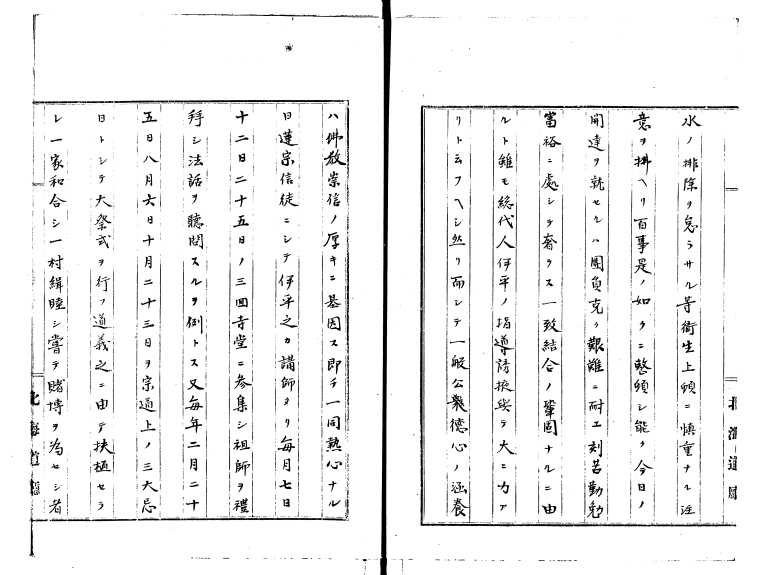 水ノ排除ヲ怠ラサル等衛生上頗ニ慎重ナル注
意ヲ拂ヘリ百事是ノ如クニ整頓シ能ク今日ノ
開達ヲ就セルハ團員克ク艱難ニ耐エ刻苦勤勉
富裕ニ處シテ奢ラス一致結合ノ鞏固ナルニ由
ルト雖モ総代人伊平ノ指導防挨與テ大ニ力ア
リト云フヘシ然リ而シテ一般公衆德心ノ涵養
北海道廳
ハ佛教崇信ノ厚キニ基因ス即チ一同熱心ナル
日蓮宗信徒ニシテ伊平之カ講師タリ毎月七日
十二日二十五日ノ三回寺堂ニ参集シ祖師ヲ禮
拜シ法話ヲ聽聞スルヲ例トス又毎年二月二十
五日八月六日十月二十三日ヲ宗道上ノ三大忌
日トシテ大祭式ヲ行フ道義之ニ由テ扶植セラ
レ一家和合シ一村緝睦シ嘗テ賭博ヲ為セシ者
北海道廳